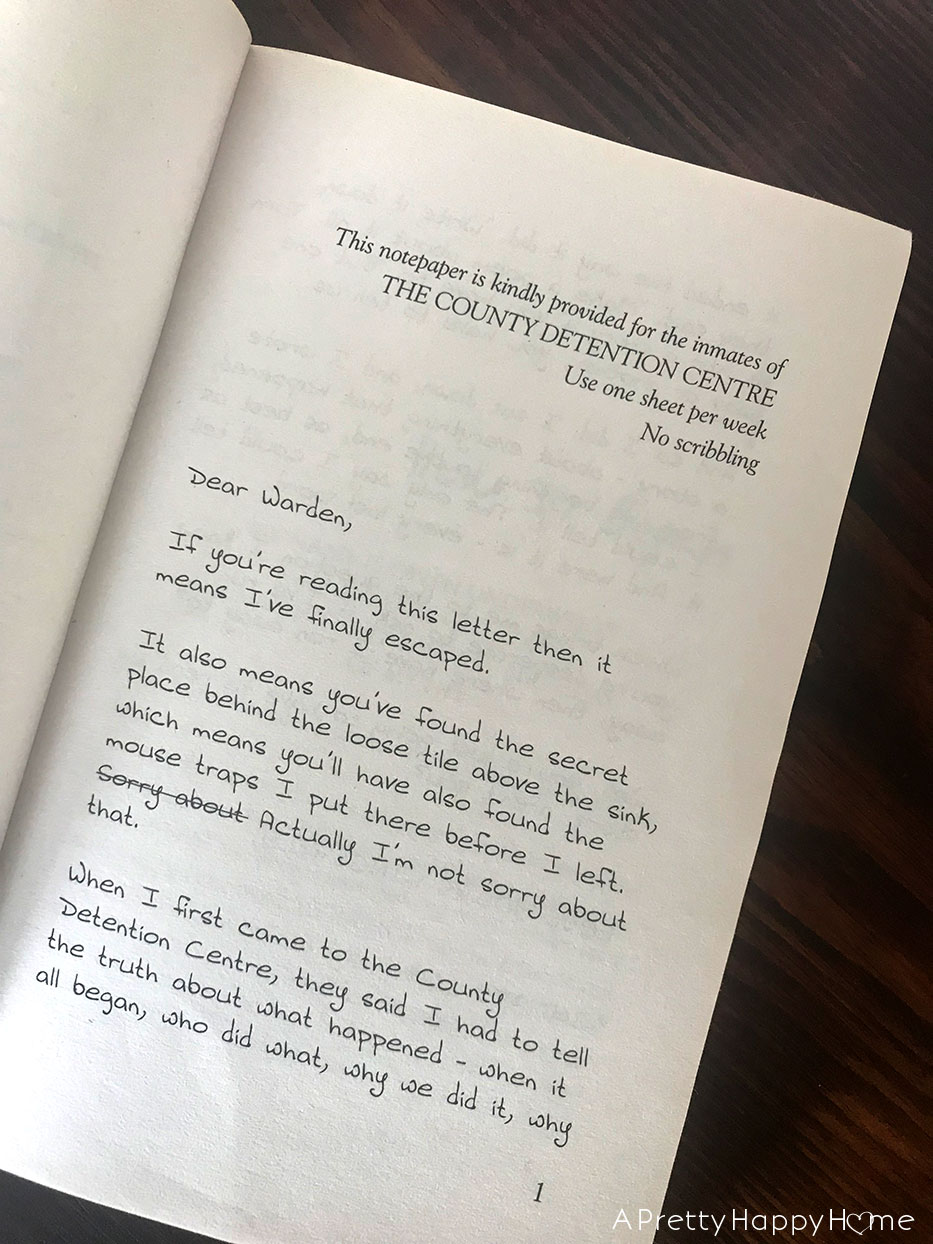 This notepaper is kindly provided for the inmates of
THE COUNTY DETENTION CENTRE
Use one sheet per week
No scribbling
Dear Warden,
If you're reading this letter then it
means I've finally escaped.
It also means you've found the secret
place behind the loose tile above the sink,
which means you'll have also found the
mouse traps I put there before I left.
Sorry about Actually I'm not sorry about
that.
When I first came to the County
Detention Centre, they said I had to tell
the truth about what happened – when it
all began, who did what, why we did it, why
1
APrettyHappyHome